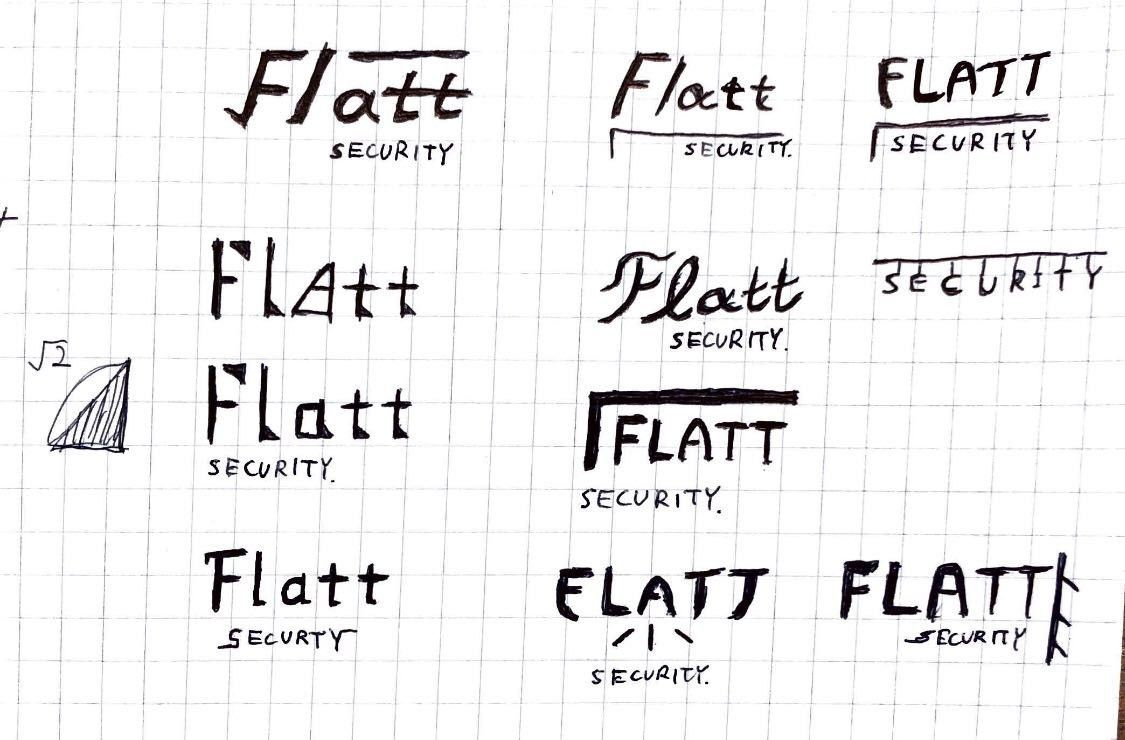 Flatt
SECURITY
Flatt
SECURITY.
FLATT
SECURITY
FlAtt
Flatt
SECURITY.
SECURITY
√2
Flatt
SECURITY.
FLATT
SECURITY.
Flatt
SECURTY
FLATT
SECURITY.
FLATT
SECURITY